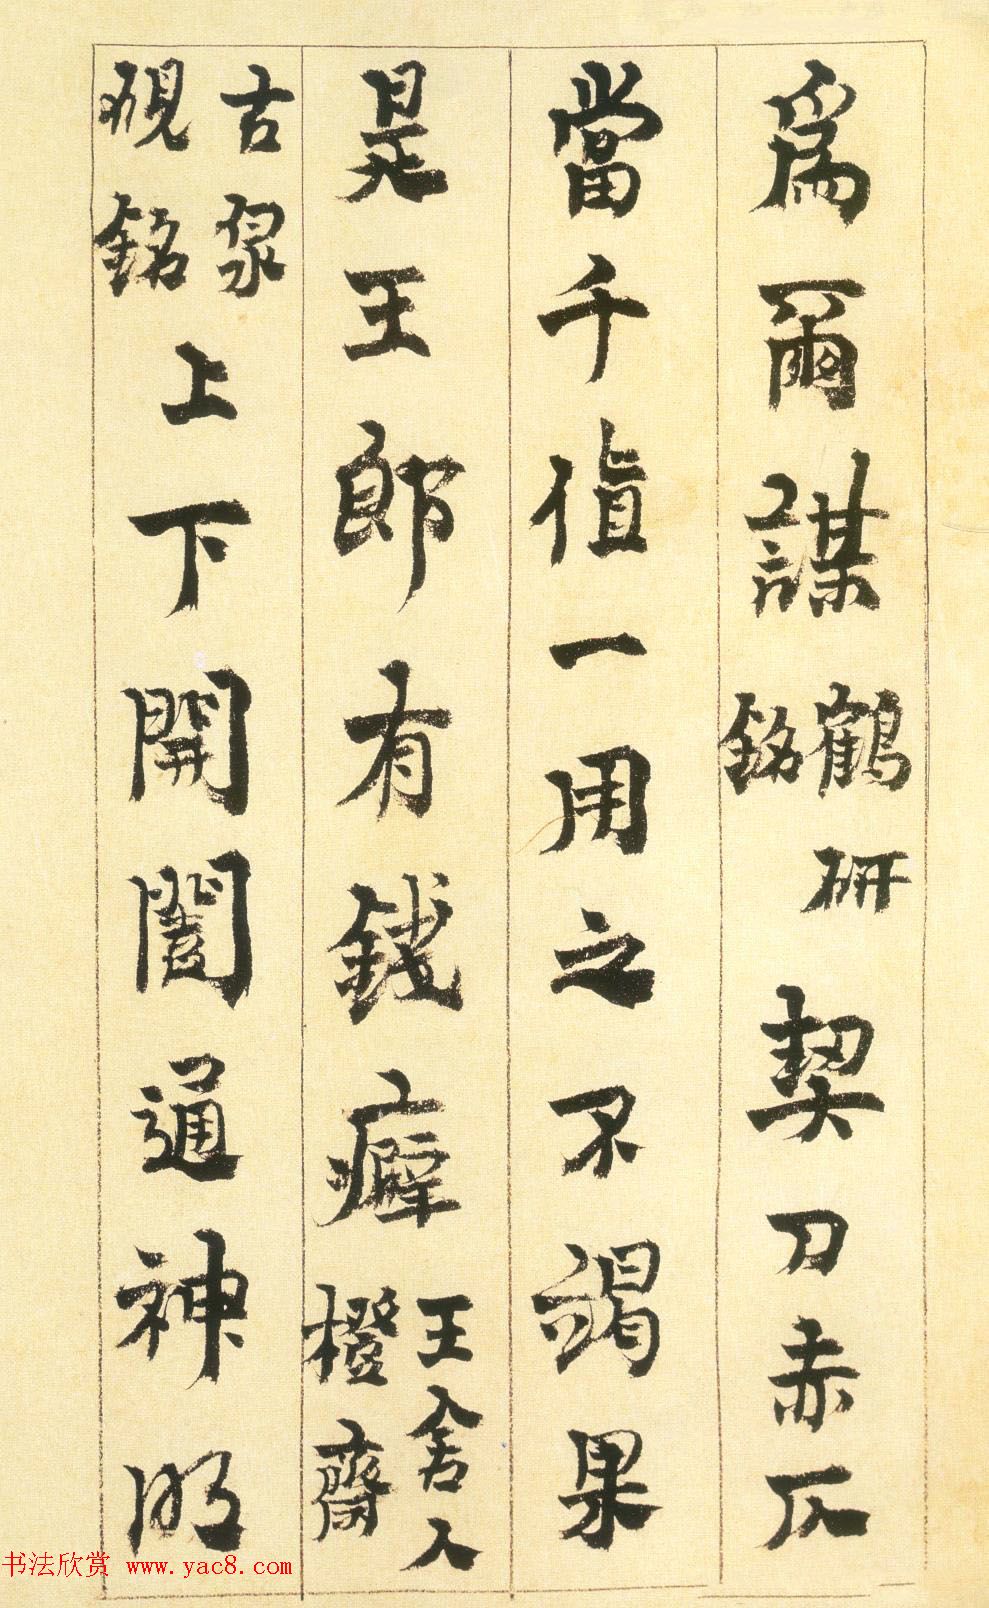 為爾謀鶴研銘契刀赤仄
當千值一用之不竭果
是王郎有錢癖王舍人橙齋
古泉硯銘上下開闔通神明
书法欣赏 www.yac8.com